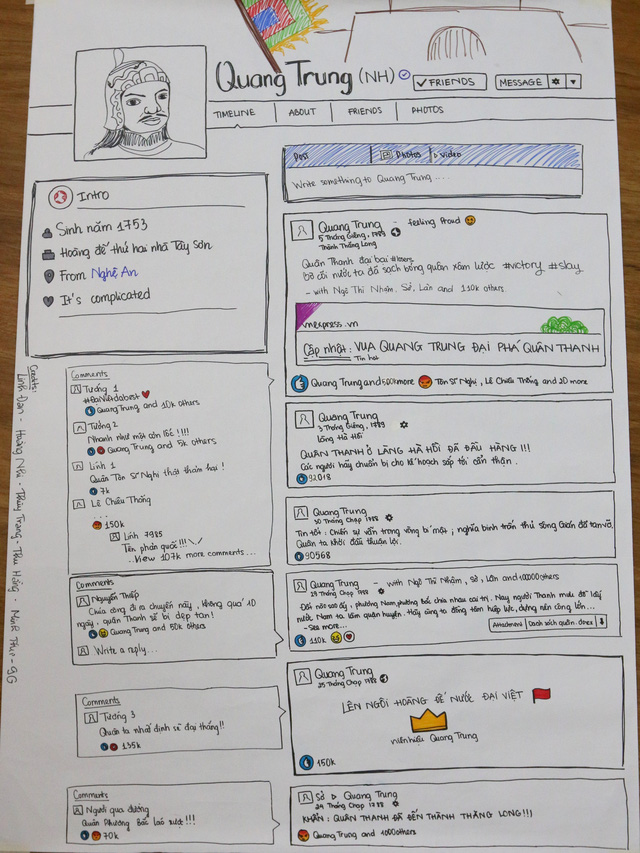 Quang Trung (NH)
✓FRIENDS
MESSAGE
TIMELINE
ABOUT
FRIENDS
PHOTOS
Intro
Sinh năm 1753
Hoàng đế thứ hai nhà Tây Sơn
From Nghệ An
It's complicated
Post
Photos
Video
Write something to Quang Trung ....
Quang Trung - feeling proud
5 Tháng Giêng, 1789
Thành Thăng Long
Quân Thanh đại bại #losers
Bờ cõi nước ta đã sạch bóng quân xâm lược #victory #slay
- with Ngô Thì Nhậm, Sở, Lân and 110k others
vnexpress.vn
Cập nhật: VUA QUANG TRUNG ĐẠI PHÁ QUÂN THANH
Tin hot
Quang Trung and 500k more
Tôn Sĩ Nghị, Lê Chiêu Thống and 20 more
Comments
Tướng 1
#ĐạiViệtdabest
Quang Trung and 10k others
Tướng 2
Nhanh như một cơn lốc!!!!
Quang Trung and 5k others
Lính 1
Quân Tôn Sĩ Nghị thật thảm hại!
7k
Lê Chiêu Thống
...
150k
Lính 7985
Tên phản quốc!!!
...View 107k more comments...
Quang Trung
3 Tháng Giêng, 1789
Làng Hà Hồi
QUÂN THANH Ở LÀNG HÀ HỒI ĐÃ ĐẦU HÀNG!!!
Các ngươi hãy chuẩn bị cho kế hoạch sắp tới cẩn thận.
92018
Quang Trung
30 Tháng Chạp 1788
Tin tốt: Chiến sự vẫn trong vòng bí mật; nghĩa binh trấn thủ sông Gián đã tan vỡ.
Quân ta khởi đầu thuận lợi.
90568
Comments
Nguyễn Thiếp
Chúa công đi ra chuyến này, không quá 10
ngày, quân Thanh sẽ bị dẹp tan!
Quang Trung and 50k others
Write a reply...
Quang Trung - with Ngô Thì Nhậm, Sở, Lân and 10000 others
29 Tháng Chạp 1788
phương Nam, phương Bắc chia nhau cai trị. Nay người Thanh mưu đồ lấy
nước Nam ta làm quận huyện. Hãy cùng ta đồng tâm hiệp lực, dựng nên công lớn...
-See more...
Attachment
Danh sách quân .docx
110k
Comments
Tướng 3
Quân ta nhất định sẽ đại thắng!!
135k
Quang Trung
25 Tháng Chạp 1788
LÊN NGÔI HOÀNG ĐẾ NƯỚC ĐẠI VIỆT
niên hiệu Quang Trung
150k
Comments
Người qua đường
Quân Phương Bắc láo xược!!!
70k
Sở ▷ Quang Trung
24 Tháng Chạp 1788
KHẨN: QUÂN THANH ĐÃ ĐẾN THÀNH THĂNG LONG!!!
Quang Trung and 1000 others
Credits:
Linh Đan - Hương Nhi - Thùy Trang - Thu Hường - Minh Thư - 9G